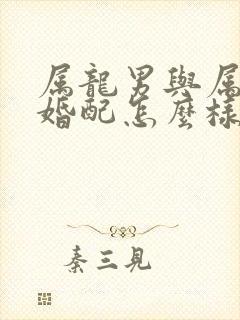 属龍男與属
婚配怎麼樣
秦三見